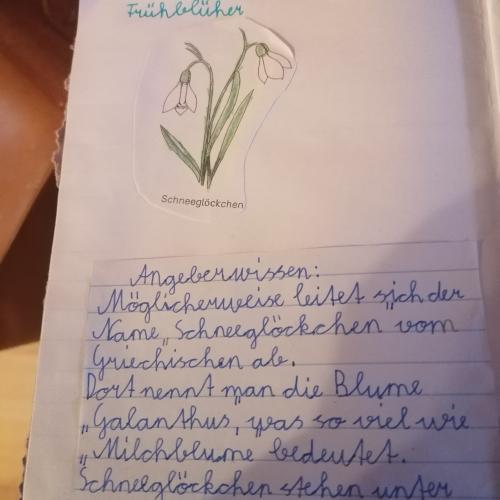 Frühblüher
Schneeglöckchen
Angeberwissen:
Möglicherweise leitet sich der
Name „Schneeglöckchen" vom
Griechischen ab.
Dort nennt man die Blume
„Galanthus", was so viel wie
„Milchblume bedeutet.
Schneeglöckchen stehen unter